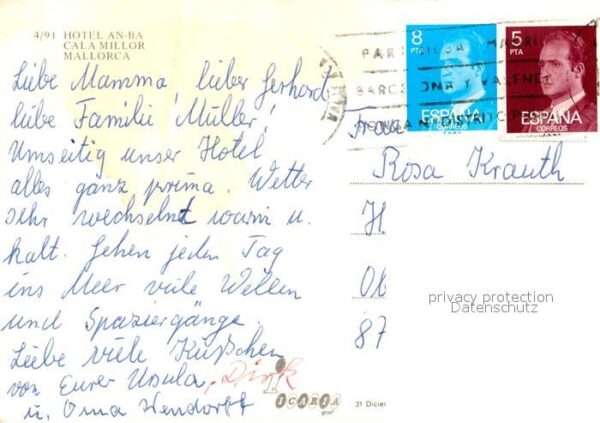 4/91 HOTEL AN-BA
CALA MILLOR
MALLORCA
Liebe Mamma, lieber Gerhard
liebe Familie Müller!
Umseitig unser Hotel
alles ganz prima. Wetter
sehr wechselnd warm u.
kalt. Gehen jeden Tag
ins Meer viele Wellen
und Spaziergänge.
Liebe viele Küßchen
von Eurer Ursula, Dirk
u. Oma Wendorff
8 PTA
ESPAÑA
CORREOS
5 PTA
ESPAÑA
CORREOS
PARA
BARCELONA Y VALENCIA
DISTRITO
Frau
Rosa Krauth
H
Ol
87
privacy protection
Datenschutz
ICARIA
graf
31 Dicie